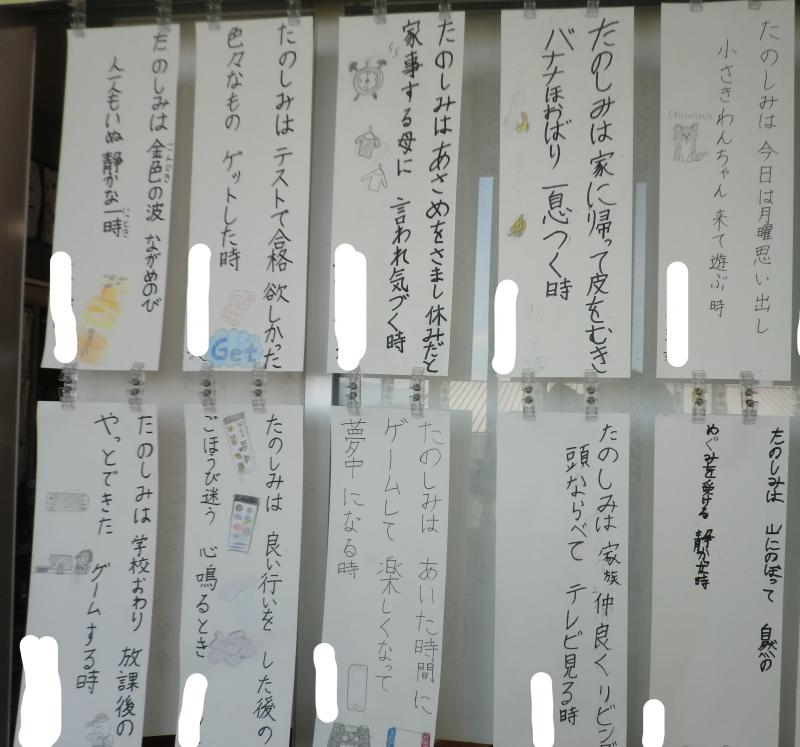 たのしみは 今日は月曜思い出し
小さきわんちゃん 来て遊ぶ時
Chiwawa
たのしみは家に帰って皮をむき
バナナほおばり 一息つく時
たのしみはあさめをさまし休みだと
家事する母に 言われ気づく時
たのしみは テストで合格 欲しかった
色々なもの ゲットした時
Get
たのしみは 金色の波 ながめのび
こんじき
人一人もいぬ 静かな一時
たのしみは 山にのぼって 自然の
めぐみを受ける 静かな時
たのしみは 家族 仲良く リビング
頭ならべて テレビ見る時
たのしみは あいた時間に
ゲームして 楽しくなって
夢中になる時
たのしみは 良い行いを した後の
ごほうび迷う 心鳴るとき
たのしみは 学校おわり 放課後の
やっとできた ゲームする時